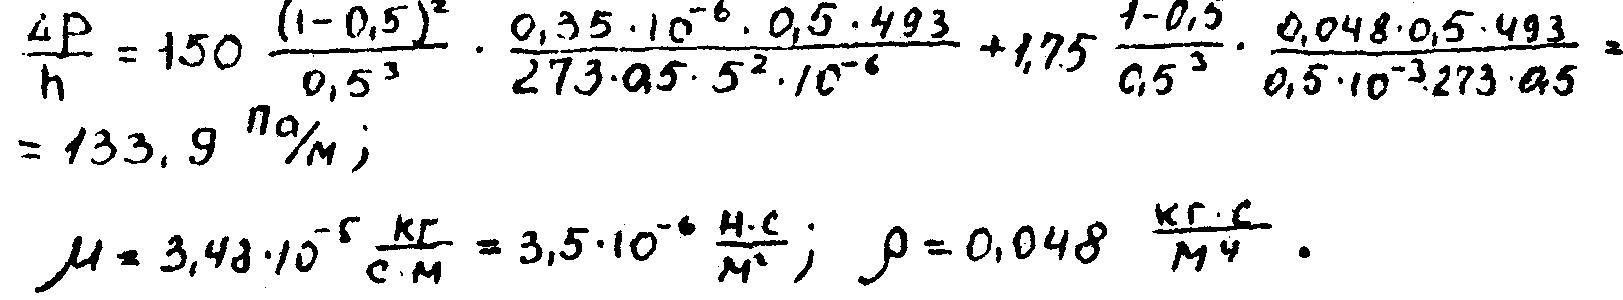 Δp/h = 150 (1-0,5)²/0,5³ · 0,35·10⁻⁶·0,5·493/273·0,5·5²·10⁻⁶ + 1,75 1-0,5/0,5³ · 0,048·0,5·493/0,5·10⁻³·273·0,5 =
= 133,9 Па/м;
μ = 3,48·10⁻⁵ кг/с·м = 3,5·10⁻⁶ н·с/м²; ρ = 0,048 кг·с/м⁴.